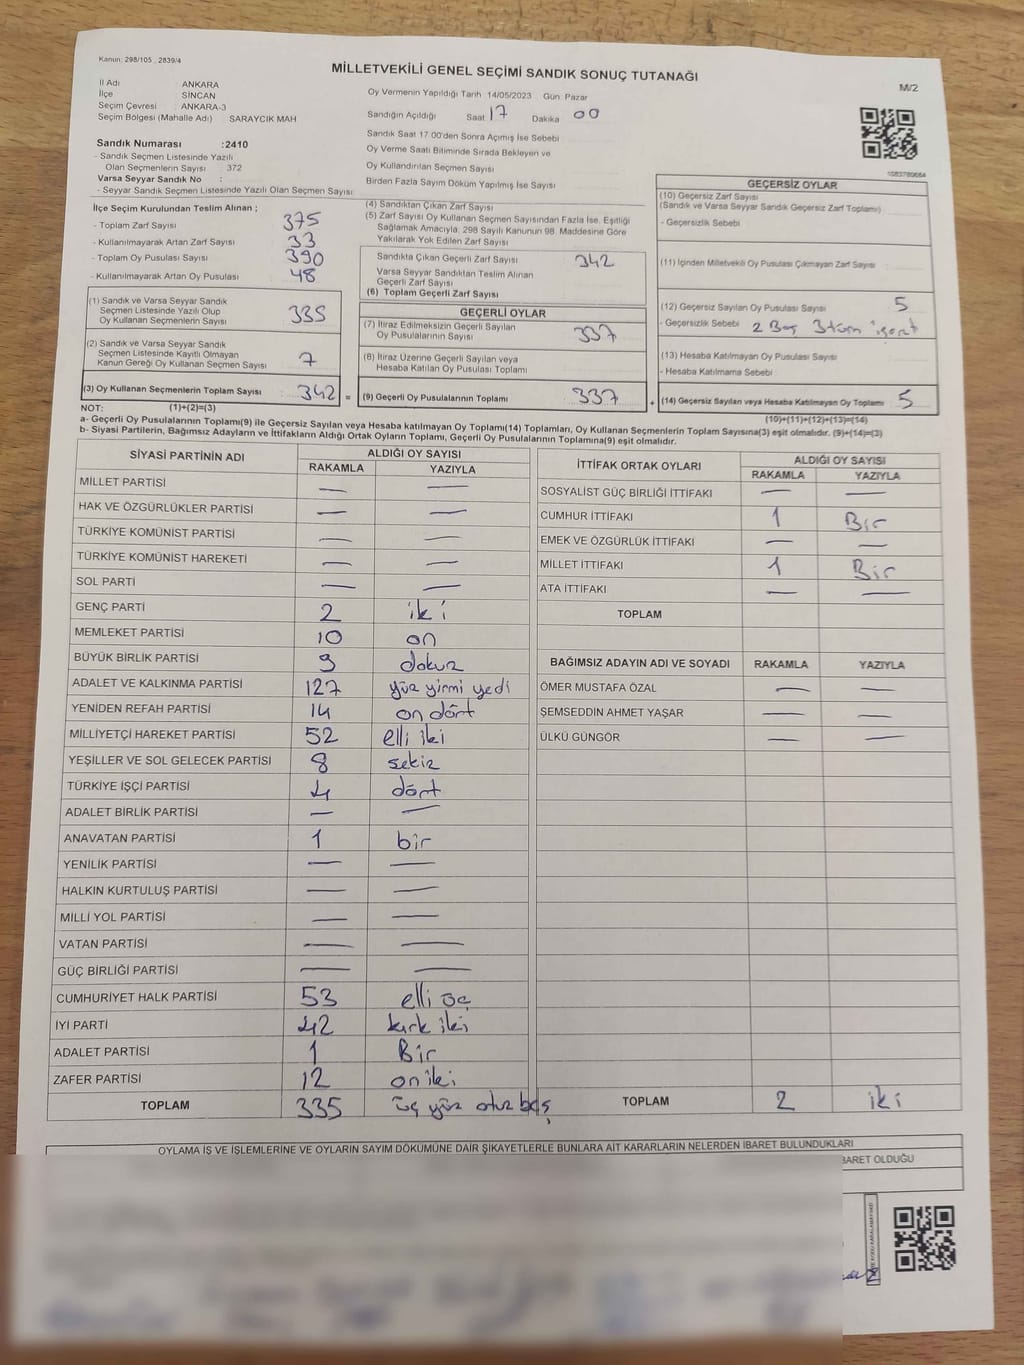 Kanun: 298/105 , 2839/4
MİLLETVEKİLİ GENEL SEÇİMİ SANDIK SONUÇ TUTANAĞI
M/2
İl Adı ANKARA
İlçe SİNCAN
Seçim Çevresi : ANKARA-3
Seçim Bölgesi (Mahalle Adı) SARAYCIK MAH
Sandık Numarası :2410
- Sandık Seçmen Listesinde Yazılı
Olan Seçmenlerin Sayısı : 372
Varsa Seyyar Sandık No :
- Seyyar Sandık Seçmen Listesinde Yazılı Olan Seçmen Sayısı
Oy Vermenin Yapıldığı Tarih 14/05/2023 Gün: Pazar
Sandığın Açıldığı Saat 17 Dakika 00
Sandık Saat 17.00'den Sonra Açımış İse Sebebi
Oy Verme Saati Bitiminde Sırada Bekleyen ve
Oy Kullandırılan Seçmen Sayısı
Birden Fazla Sayım Döküm Yapılmış İse Sayısı
1083789664
İlçe Seçim Kurulundan Teslim Alınan ;
- Toplam Zarf Sayısı 375
- Kullanılmayarak Artan Zarf Sayısı 33
- Toplam Oy Pusulası Sayısı 390
- Kullanılmayarak Artan Oy Pusulası 48
(1) Sandık ve Varsa Seyyar Sandık
Seçmen Listesinde Yazılı Olup
Oy Kullanan Seçmenlerin Sayısı 335
(2) Sandık ve Varsa Seyyar Sandık
Seçmen Listesinde Kayıtlı Olmayan
Kanun Gereği Oy Kullanan Seçmen Sayısı 7
(3) Oy Kullanan Seçmenlerin Toplam Sayısı 342 =
(4) Sandıktan Çıkan Zarf Sayısı
(5) Zarf Sayısı Oy Kullanan Seçmen Sayısından Fazla İse, Eşitliği
Sağlamak Amacıyla, 298 Sayılı Kanunun 98. Maddesine Göre
Yakılarak Yok Edilen Zarf Sayısı
Sandıkta Çıkan Geçerli Zarf Sayısı 342
Varsa Seyyar Sandıktan Teslim Alınan
Geçerli Zarf Sayısı
(6) Toplam Geçerli Zarf Sayısı
GEÇERLİ OYLAR
(7) İtiraz Edilmeksizin Geçerli Sayılan
Oy Pusulalarının Sayısı 337
(8) İtiraz Üzerine Geçerli Sayılan veya
Hesaba Katılan Oy Pusulası Toplamı
(9) Geçerli Oy Pusulalarının Toplamı 337 +
GEÇERSİZ OYLAR
(10) Geçersiz Zarf Sayısı
(Sandık ve Varsa Seyyar Sandık Geçersiz Zarf Toplamı)
- Geçersizlik Sebebi
(11) İçinden Milletvekili Oy Pusulası Çıkmayan Zarf Sayısı
(12) Geçersiz Sayılan Oy Pusulası Sayısı 5
- Geçersizlik Sebebi 2 Boş 3 tüm işart
(13) Hesaba Katılmayan Oy Pusulası Sayısı
- Hesaba Katılmama Sebebi
(14) Geçersiz Sayılan veya Hesaba Katılmayan Oy Toplamı 5
NOT: (1)+(2)=(3) (10)+(11)+(12)+(13)=(14)
a- Geçerli Oy Pusulalarının Toplamı(9) ile Geçersiz Sayılan veya Hesaba Katılmayan Oy Toplamı(14) Toplamları, Oy Kullanan Seçmenlerin Toplam Sayısına(3) eşit olmalıdır. (9)+(14)=(3)
b- Siyasi Partilerin, Bağımsız Adayların ve İttifakların Aldığı Ortak Oyların Toplamı, Geçerli Oy Pusulalarının Toplamına(9) eşit olmalıdır.
SİYASİ PARTİNİN ADI ALDIĞI OY SAYISI
RAKAMLA YAZIYLA
MİLLET PARTİSİ — —
HAK VE ÖZGÜRLÜKLER PARTİSİ — —
TÜRKİYE KOMÜNİST PARTİSİ — —
TÜRKİYE KOMÜNİST HAREKETİ — —
SOL PARTİ — —
GENÇ PARTİ 2 iki
MEMLEKET PARTİSİ 10 on
BÜYÜK BİRLİK PARTİSİ 9 dokuz
ADALET VE KALKINMA PARTİSİ 127 yüz yirmi yedi
YENİDEN REFAH PARTİSİ 14 on dört
MİLLİYETÇİ HAREKET PARTİSİ 52 elli iki
YEŞİLLER VE SOL GELECEK PARTİSİ 8 sekiz
TÜRKİYE İŞÇİ PARTİSİ 4 dört
ADALET BİRLİK PARTİSİ — —
ANAVATAN PARTİSİ 1 bir
YENİLİK PARTİSİ — —
HALKIN KURTULUŞ PARTİSİ — —
MİLLİ YOL PARTİSİ — —
VATAN PARTİSİ — —
GÜÇ BİRLİĞİ PARTİSİ — —
CUMHURİYET HALK PARTİSİ 53 elli üç
İYİ PARTİ 42 kırk iki
ADALET PARTİSİ 1 Bir
ZAFER PARTİSİ 12 on iki
TOPLAM 335 üç yüz otuz beş
İTTİFAK ORTAK OYLARI ALDIĞI OY SAYISI
RAKAMLA YAZIYLA
SOSYALİST GÜÇ BİRLİĞİ İTTİFAKI — —
CUMHUR İTTİFAKI 1 Bir
EMEK VE ÖZGÜRLÜK İTTİFAKI — —
MİLLET İTTİFAKI 1 Bir
ATA İTTİFAKI — —
TOPLAM
BAĞIMSIZ ADAYIN ADI VE SOYADI RAKAMLA YAZIYLA
ÖMER MUSTAFA ÖZAL — —
ŞEMSEDDİN AHMET YAŞAR — —
ÜLKÜ GÜNGÖR — —
TOPLAM 2 iki
OYLAMA İŞ VE İŞLEMLERİNE VE OYLARIN SAYIM DÖKÜMÜNE DAİR ŞİKAYETLERLE BUNLARA AİT KARARLARIN NELERDEN İBARET BULUNDUKLARI
BARET OLDUĞU